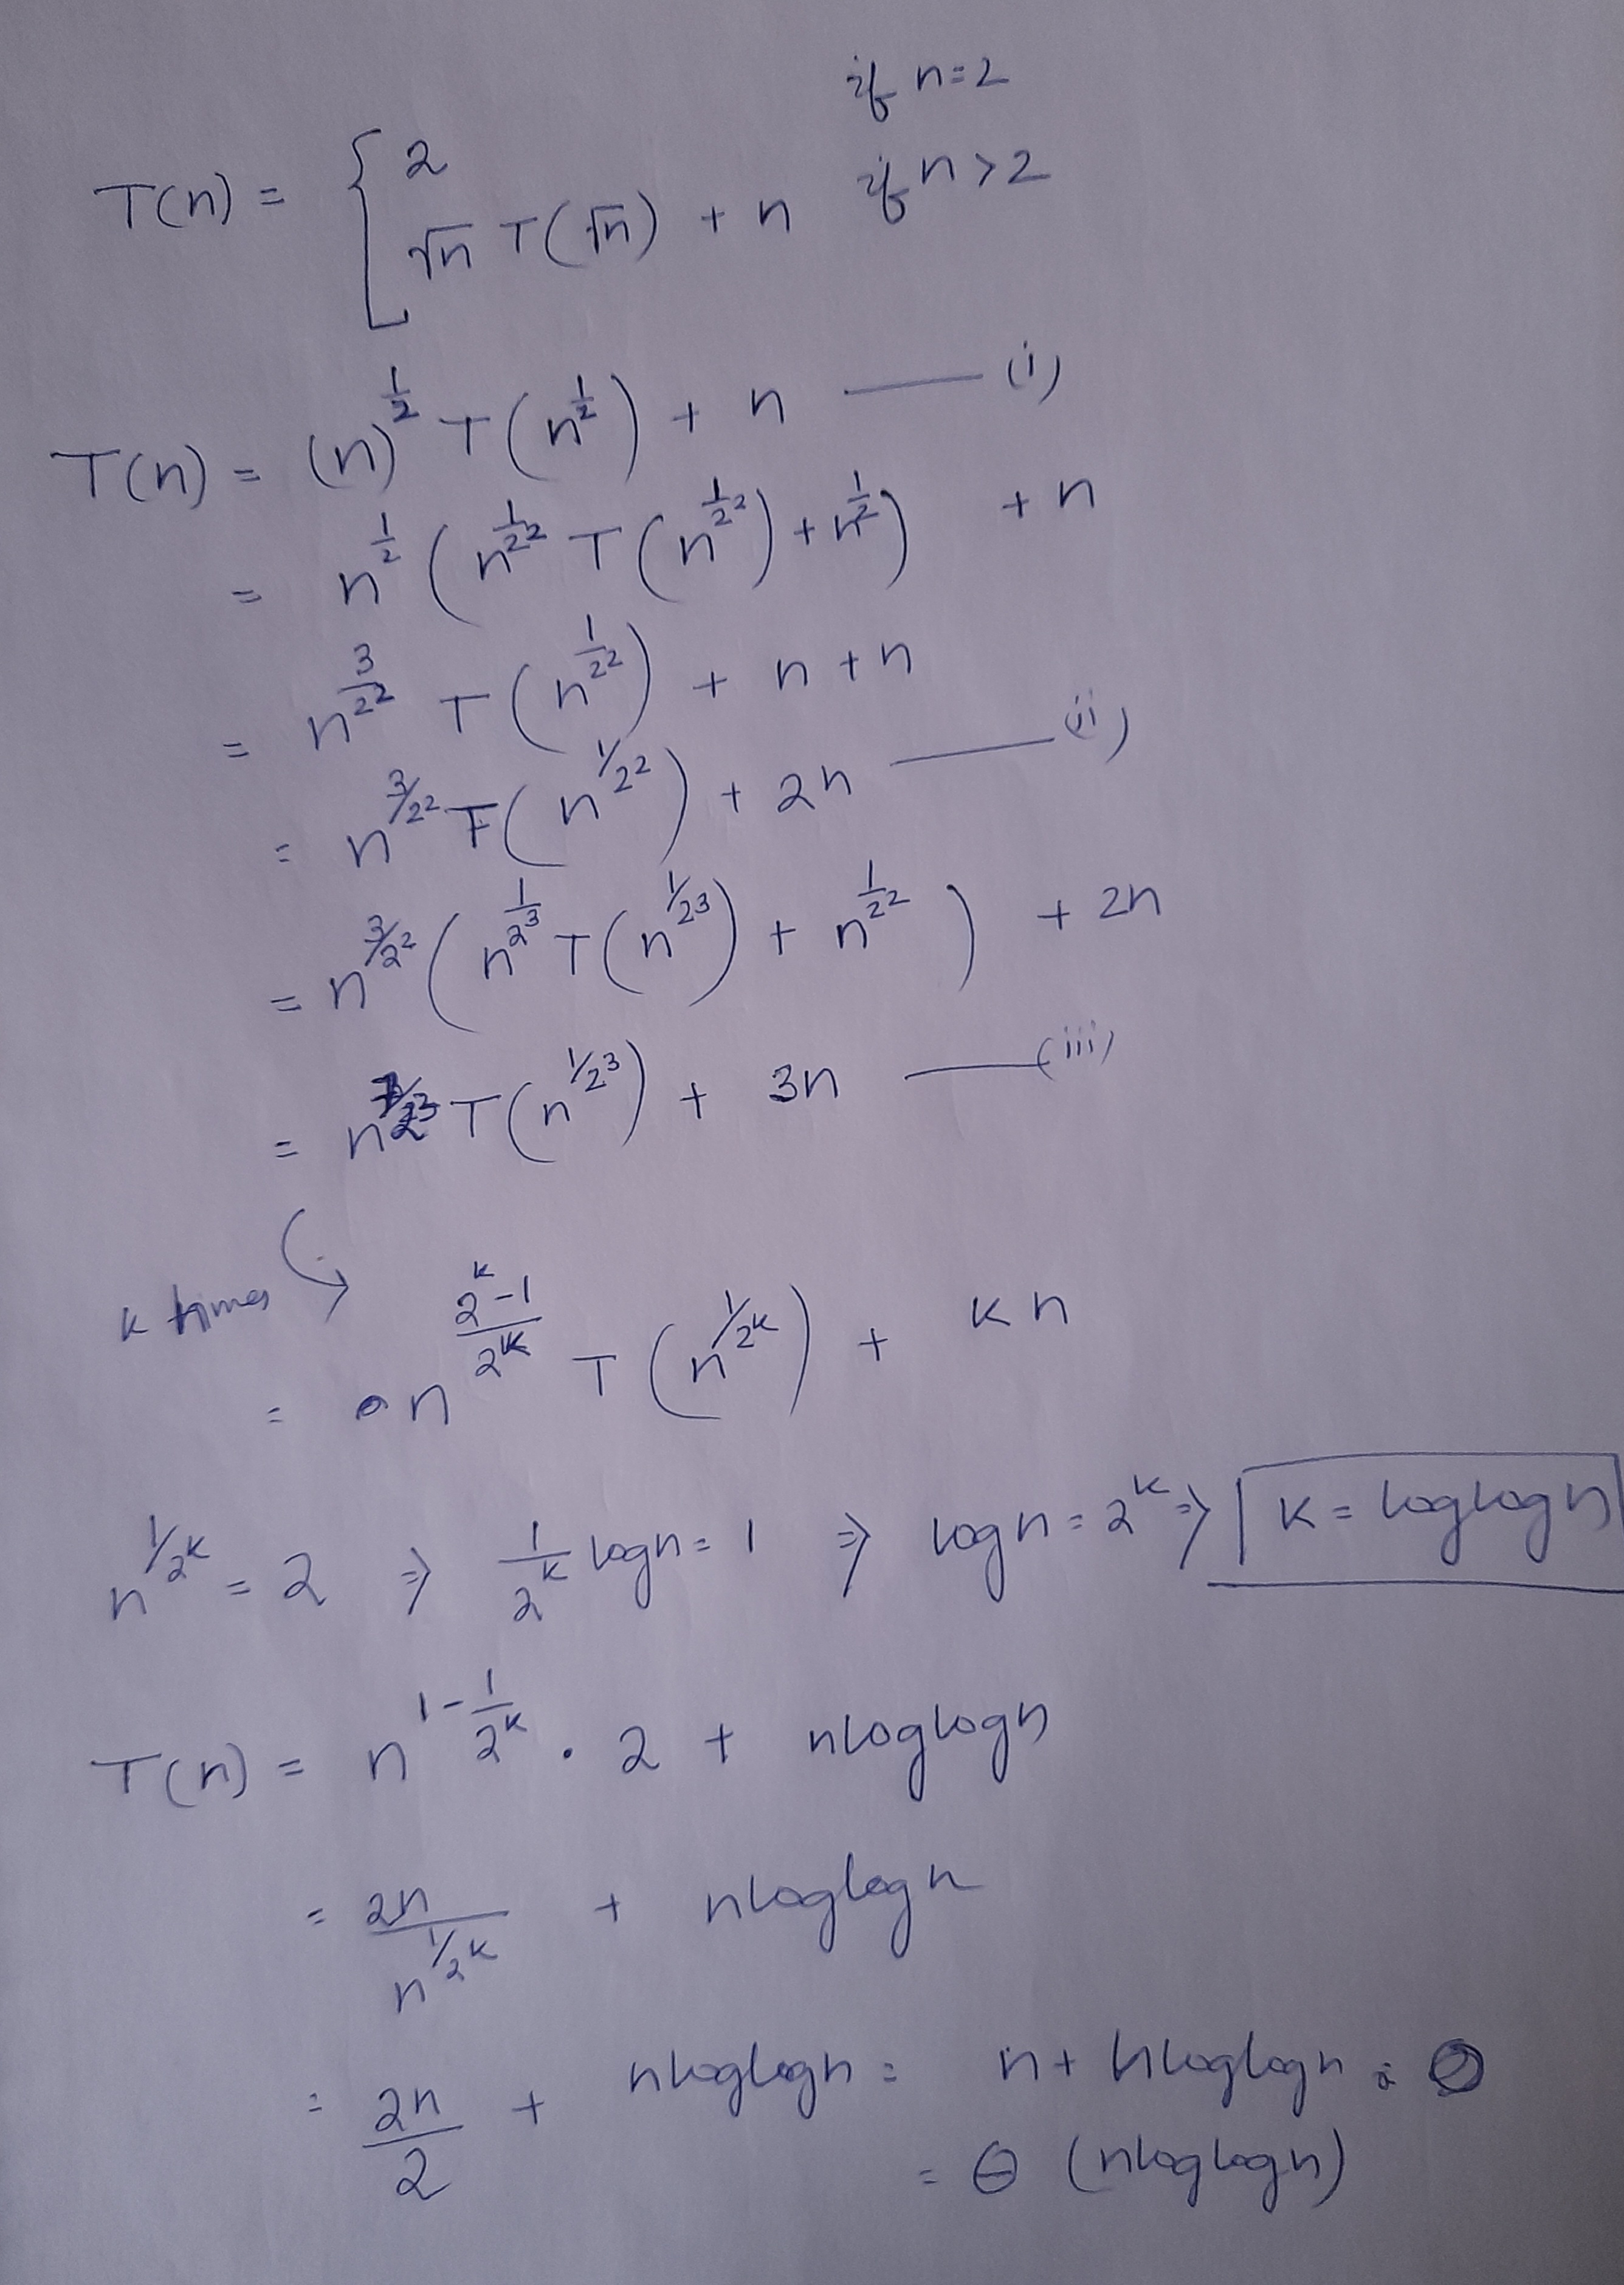 T(n) = { 2 if n=2
√n T(√n) + n if n>2
T(n) = (n)^{1/2} T(n^{1/2}) + n —— (i)
= n^{1/2} (n^{1/2^2} T(n^{1/2^2}) + n^{1/2}) + n
= n^{3/2^2} T(n^{1/2^2}) + n + n
= n^{3/2^2} T(n^{1/2^2}) + 2n —— (ii)
= n^{3/2^2} (n^{1/2^3} T(n^{1/2^3}) + n^{1/2^2}) + 2n
= n^{7/2^3} T(n^{1/2^3}) + 3n —— (iii)
k times
= n^{(2^k-1)/2^k} T(n^{1/2^k}) + kn
n^{1/2^k} = 2 ⇒ 1/2^k logn = 1 ⇒ logn = 2^k ⇒ k = loglogn
T(n) = n^{1-1/2^k} . 2 + nloglogn
= 2n/n^{1/2^k} + nloglogn
= 2n/2 + nloglogn = n + nloglogn =
= θ (nloglogn)